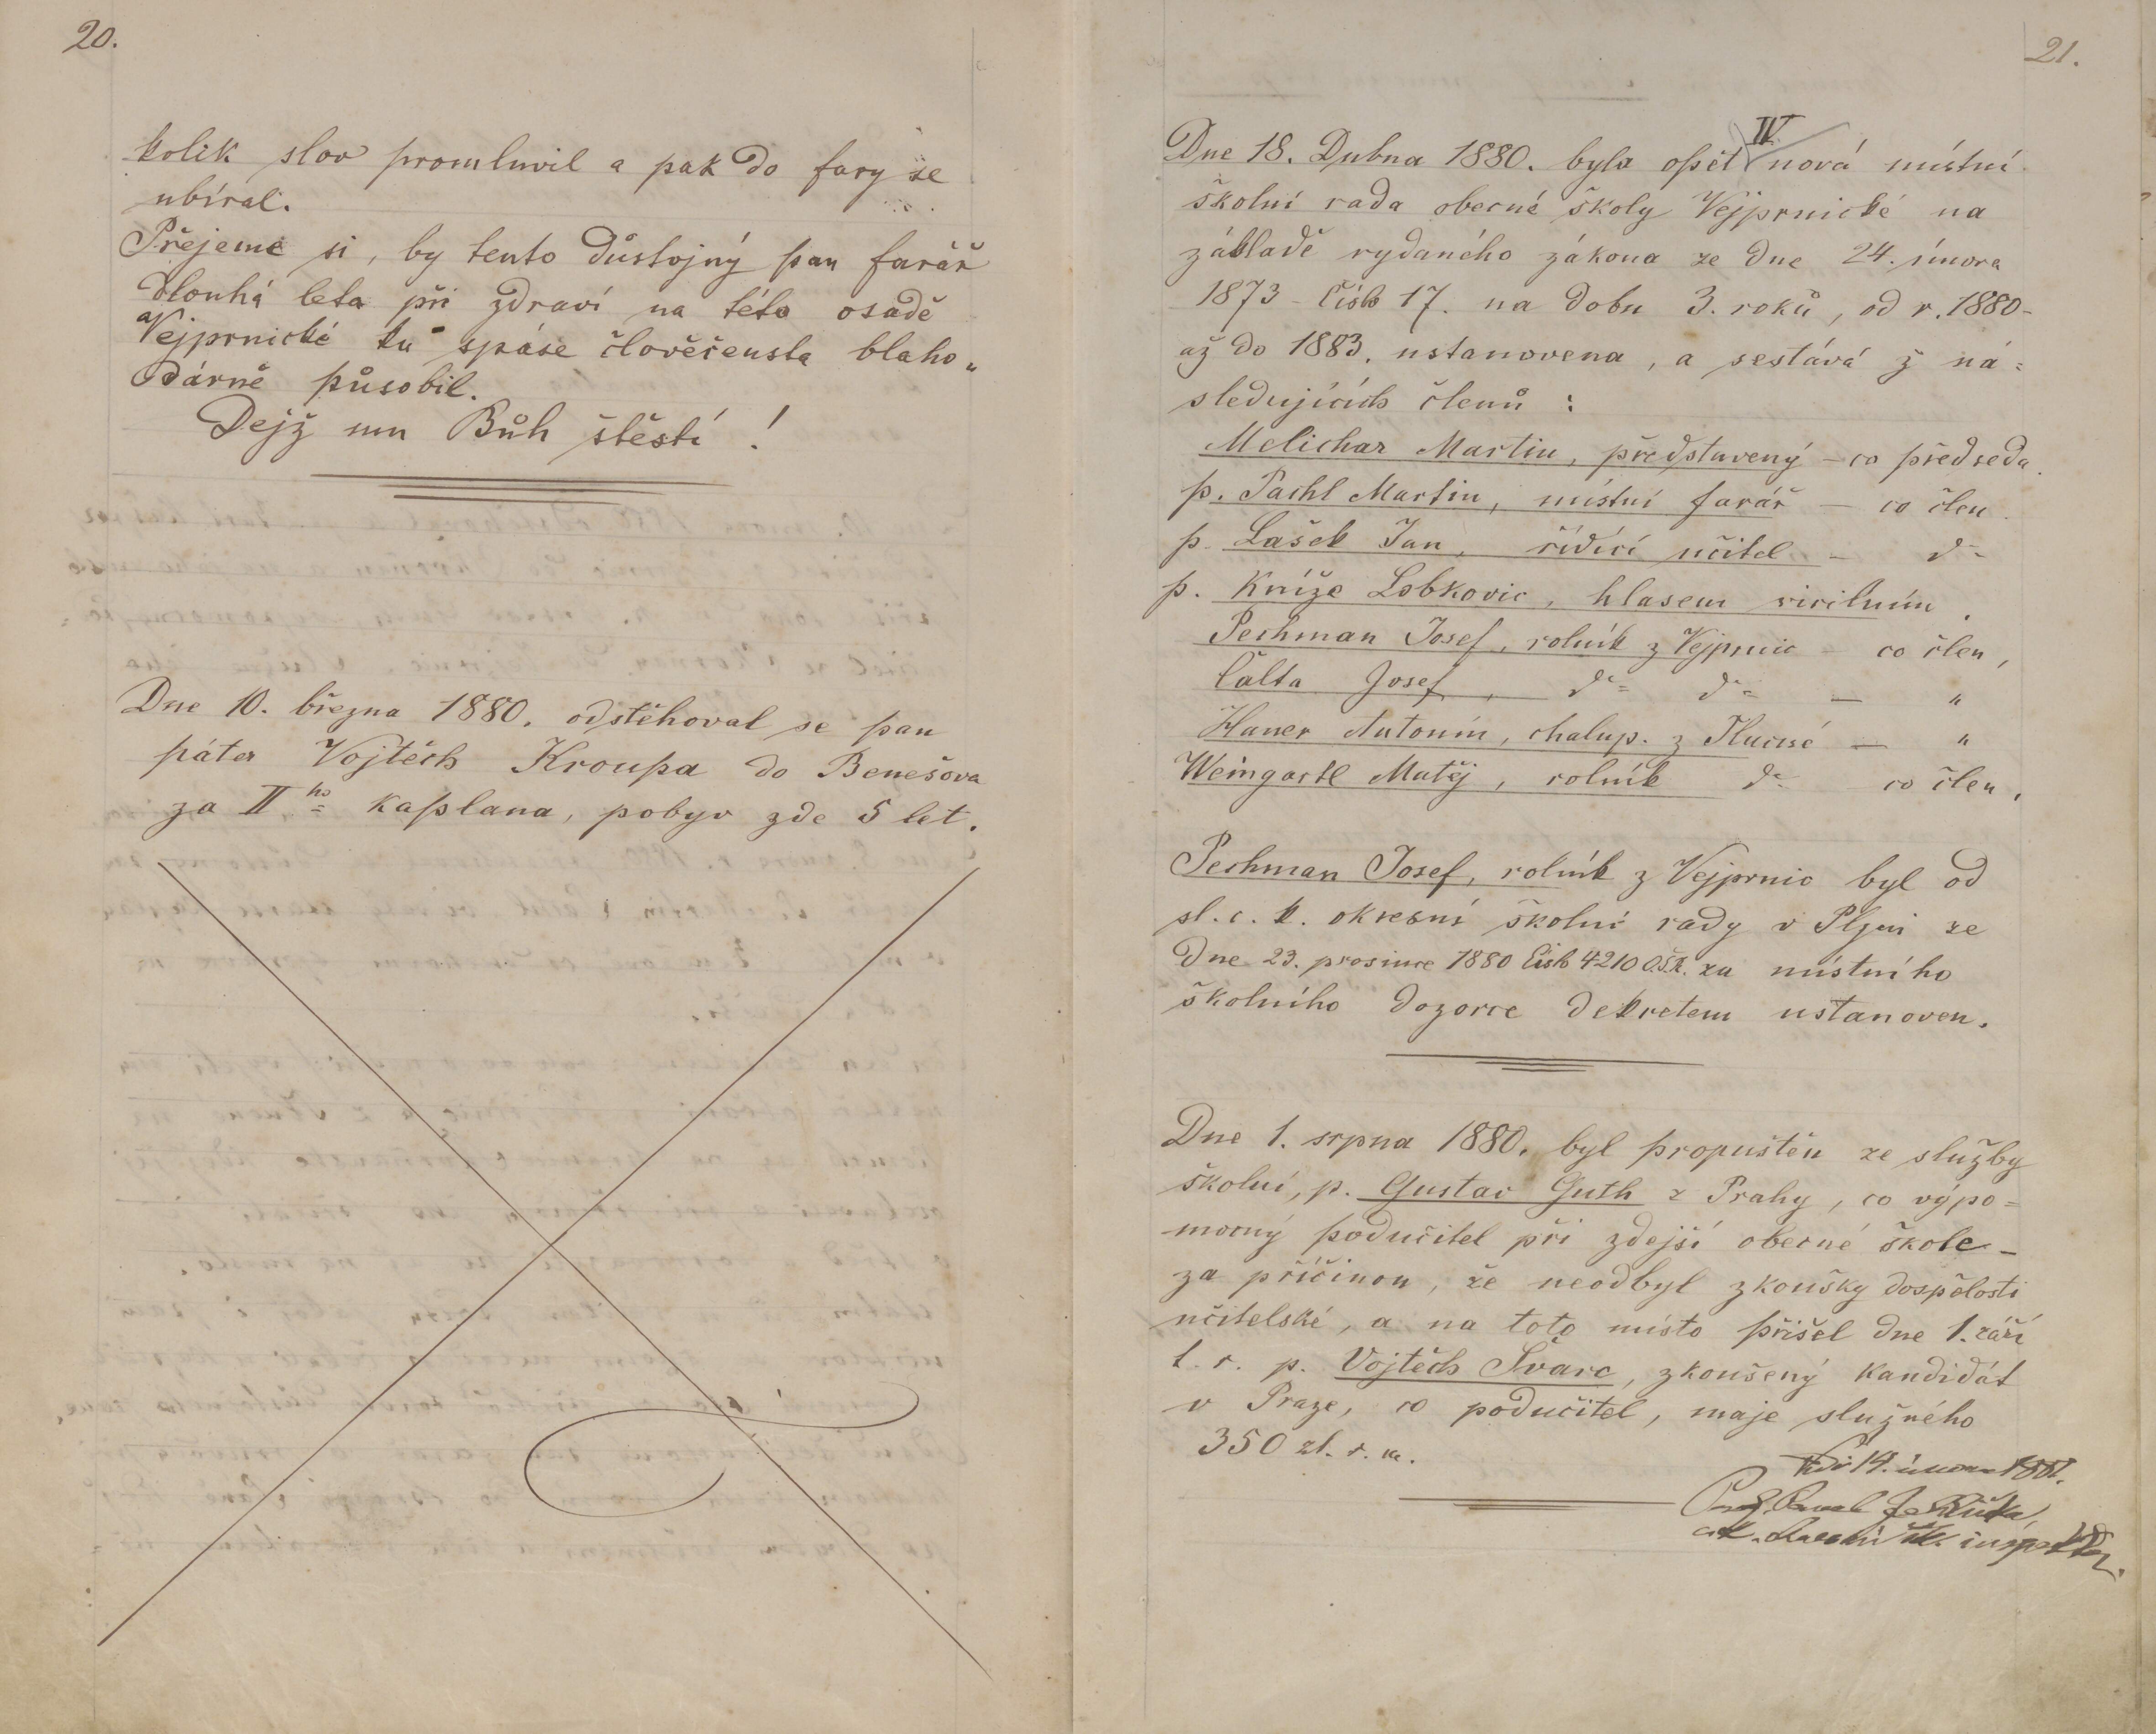 20.
kolik slov promluvil a pak do fary se
ubíral.
Přejeme si, by tento důstojný pan farář
dlouhá leta při zdraví na této osadě
Vejprnické ku spáse člověčensta blaho„
dárně působil.
Dejž mu Bůh štěstí !
Dne 10. března 1880. odstěhoval se pan
páter Vojtěch Kroupa do Benešova
za II ho kaplana, pobyv zde 5 let.
21.
IV.
Dne 18. Dubna 1880. byla opět nová místní
školní rada obecné školy Vejprnické na
základě vydaného zákona ze dne 24. února
1873 - Číslo 17. na dobu 3. roků, od r. 1880-
až do 1883. ustanovena, a sestává z ná=
sledujících členů :
Melichar Martin, představený - co předseda.
p. Pachl Martin, místní farář - co člen.
p. Lašek Jan, řídící učitel - do
p. Kníže Lobkovic, hlasem virilním.
Pechman Josef, rolník z Vejprnic - co člen,
Čalta Josef, do= do= - „
Hauer Antonín, chalup. z Tlucné - „
Weingartl Matěj, rolník do co člen.
Pechman Josef, rolník z Vejprnic byl od
sl. c. k. okresní školní rady v Plzni ze
dne 23. prosince 1880 Číslo 4210 O.Š.R. za místního
školního dozorce dekretem ustanoven.
Dne 1. srpna 1880. byl propuštěn ze služby
školní, p. Gustav Guth z Prahy, co výpo=
mocný podučitel při zdejší obecné škole -
za příčinou, že neodbyl zkoušky dospělosti
učitelské, a na toto místo přišel dne 1. září
t. r. p. Vojtěch Švarc, zkoušený kandidát
v Praze, co podučitel, maje služného
350 zl. r. m.
14. února 1881.
Pavel Jehlička,
c. k. školní inspektor.